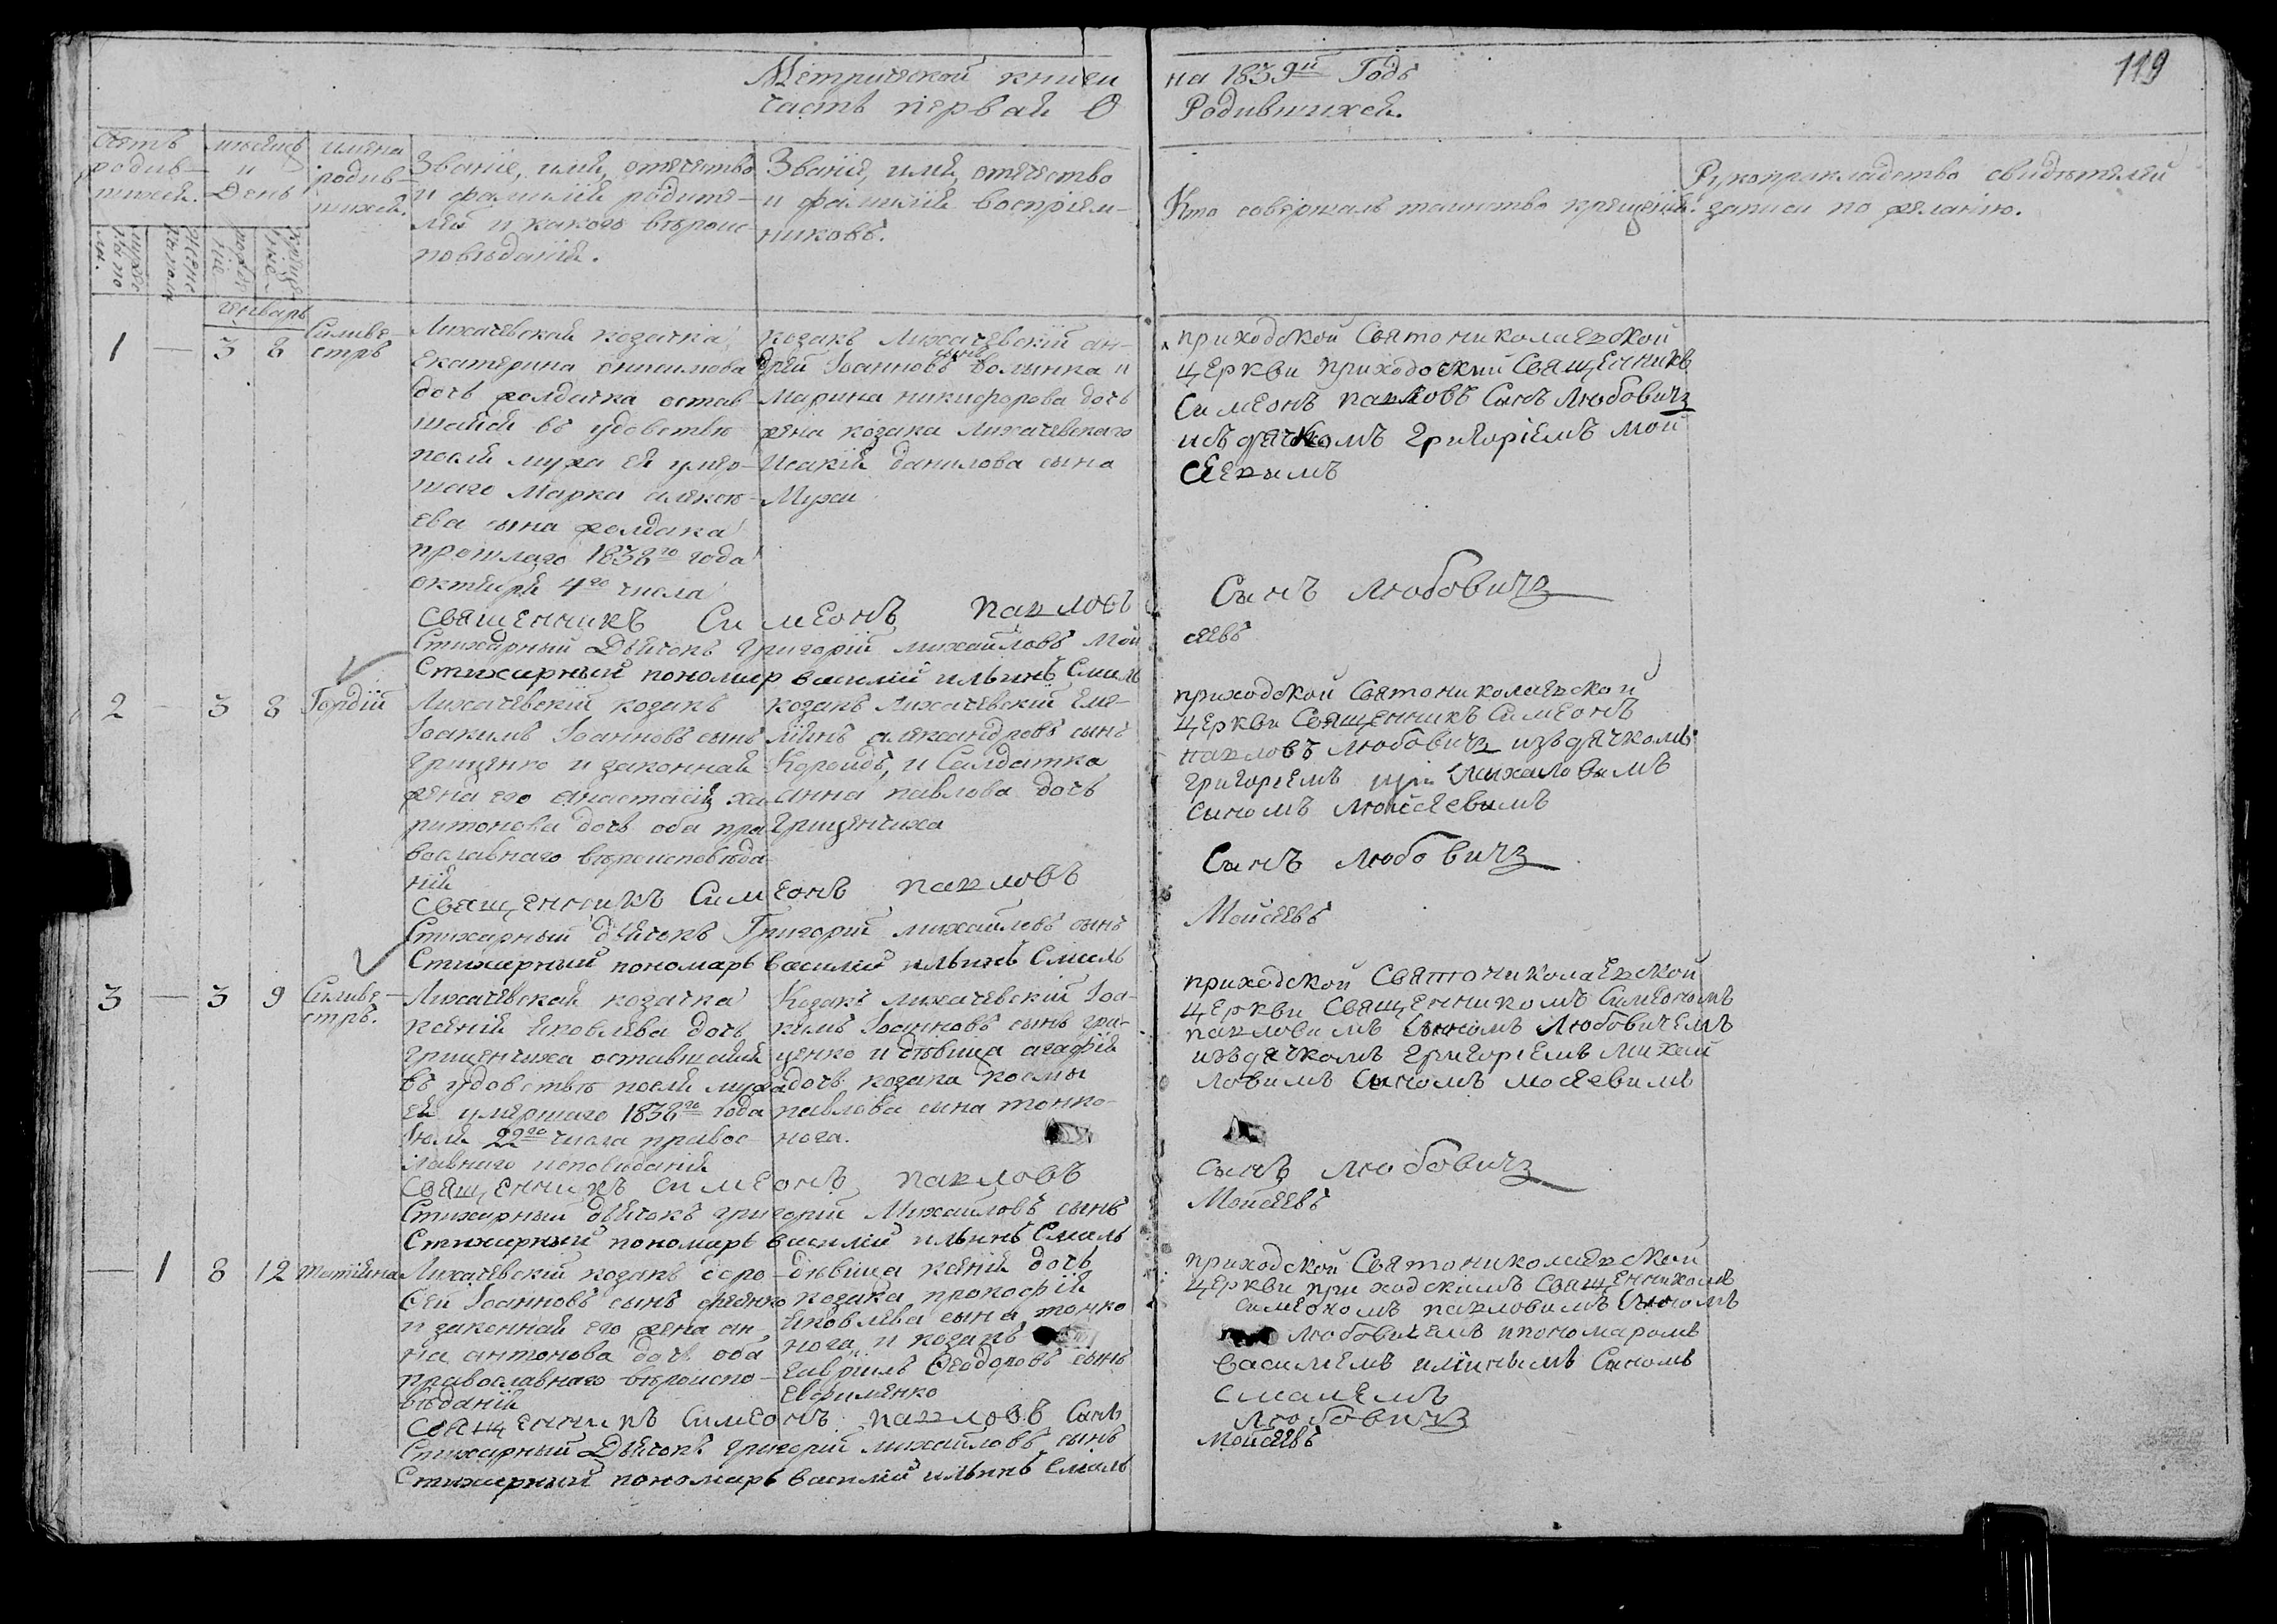 119
Метрической книги на 1839й Годъ
часть первая О Родившихся.
Счетъ родив-шихся.
мѣсяцъ и День
имена родив-шихся.
Званіе, имя, отечество
и фамилія родите-
лей и какого вѣроис-
повѣданія.
Званіе, имя, отечество
и фамилія воспріем-
никовъ.
Кто совершалъ таинство крещенія.
Рукоприкладство свидѣтелей
записи по желанію.
генварь
1 — 3 8 Сильве-
стръ
Лихачевская козачка
Екатерина онисимова
дочь солдатка остав-
шаяся въ удовствѣ
после мужа ея умер-
шаго Марка алексѣ-
ева сына
прошлаго 1838го года
октября 4го числа
козакъ Лихачевскій ан-
дрей Іоанновъ сынъ волынка и
Марина никифорова дочь
жена козака Лихачевскаго
Исакія данилова сына
Мухи
приходской Святониколаевской
церкви приходскій Священникъ
Симеонъ павловъ Сынъ Любовичъ
изъ дячкомъ григоріемъ мой
сеевымъ
священникъ Симеонъ павловъ Сынъ Любовичъ
Стихарный Дьячокъ Григорій михайловъ Мой сеевъ
Стихарный пономар василій ильинъ Смаль
2 — 3 8 Гордій
Лихачевскій козакъ
Іоакимъ Іоанновъ сынъ
гриценко и законная
жена его анастасія ха
ритонова дочь оба пра
вославнаго вѣроисповѣда
нія
козакъ Лихачевскій Еме-
ліянъ александровъ сынъ
Короидъ, и Салдатка
анна павлова дочь
Гриценчиха
приходской Святониколаевской
церкви Священникъ Симеонъ
павловъ Любовичъ изъ дячкомъ
григоріемъ Михаловимъ
синомъ Мойсеевимъ
священникъ Симеонъ павловъ Сынъ Любовичъ
Стихарный дьячокъ Григорій михайловъ сынъ Мойсеевъ
Стихарный пономарь василий ильинъ Смаль
3 — 3 9 Сильве-
стръ.
Лихачевская козачка
ксенія яковлева дочь
гриценчиха оставшаяся
въ удовствѣ после мужа
ея умершаго 1838го года
Іюля 22го числа правос-
лавнаго исповѣданія
Козакъ Лихачевскій Іоа-
кимъ Іоанновъ сынъ гри-
ценко и дѣвица агафія
дочь козака космы
павлова сына тонко-
нога.
приходской Святониколаевской
церкви Священникомъ Симеономъ
павловимъ Синомъ Любовичемъ
изъ дячкомъ григоріемъ михай
ловимъ Синомъ мосеевимъ
Священникъ Симеонъ павловъ Сынъ Любовичъ
Стихарный дьячокъ григорій Михайловъ сынъ Мойсеевъ
Стихарный пономарь василий ильинъ Смаль
— 1 8 12 татіяна
Лихачевскій козакъ
Іоанновъ сынъ
и законная его жена ан-
на антонова дочь оба
православнаго вѣроиспо-
вѣданія
дѣвица ксенія дочь
козака прокофія
яковлева сына тонко
нога, и козакъ
гавріилъ Феодоровъ сынъ
Евфименко
приходской Святониколаевской
церкви приходскимъ Священникомъ
симеономъ павловимъ Синомъ
Любовичемъ ипономаромъ
василіемъ иліинымъ Синомъ
смалемъ
Священникъ Симеонъ павловъ Синъ Любовичъ
Стихарный Дьячокъ григорій михайловъ сынъ Мойсеевъ
Стихарный пономарь василий ильинъ Смаль